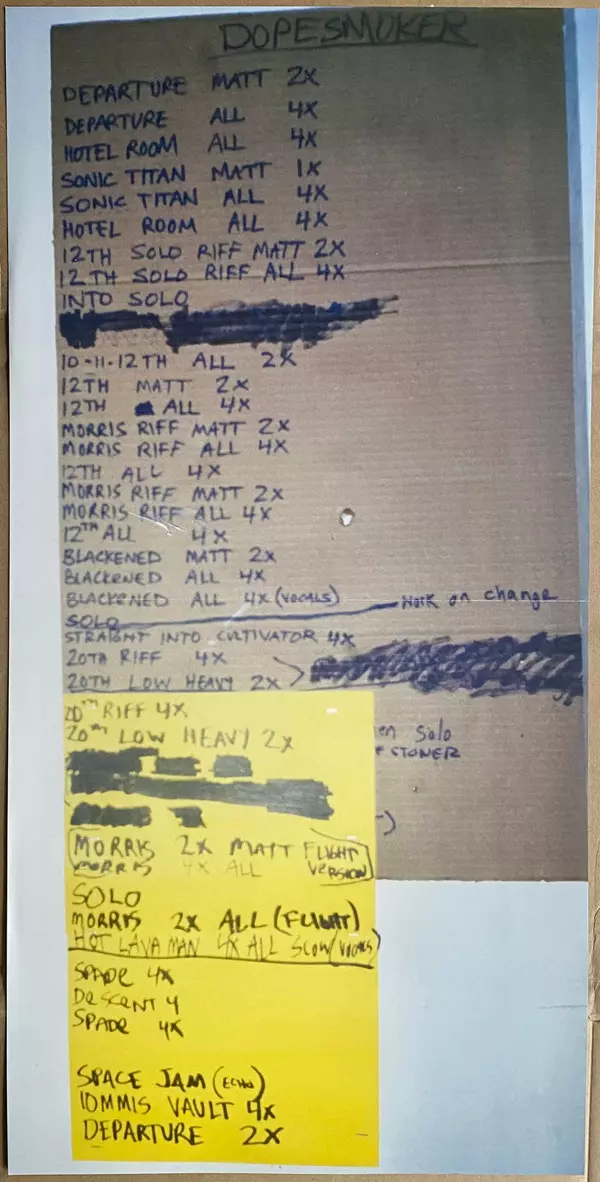 DOPESMOKER
DEPARTURE MATT 2X
DEPARTURE ALL 4X
HOTEL ROOM ALL 4X
SONIC TITAN MATT 1X
SONIC TITAN ALL 4X
HOTEL ROOM ALL 4X
12TH SOLO RIFF MATT 2X
12TH SOLO RIFF ALL 4X
INTO SOLO
10-11-12TH ALL 2X
12TH MATT 2X
12TH ALL 4X
MORRIS RIFF MATT 2X
MORRIS RIFF ALL 4X
12TH ALL 4X
MORRIS RIFF MATT 2X
MORRIS RIFF ALL 4X
12TH ALL 4X
BLACKENED MATT 2X
BLACKENED ALL 4X
BLACKENED ALL 4X (VOCALS) Work on change
SOLO
STRAIGHT INTO CULTIVATOR 4X
20TH RIFF 4X
20TH LOW HEAVY 2X
20TH RIFF 4X
20TH LOW HEAVY 2X
en Solo
STONER
MORRIS 2X MATT FLIGHT
MORRIS 4X ALL VERSION
SOLO
MORRIS 2X ALL (FLIGHT)
HOT LAVA MAN 4X ALL SLOW (VOCALS)
SPADE 4X
DESCENT 4
SPADE 4X
SPACE JAM (ECHO)
IOMMIS VAULT 4X
DEPARTURE 2X